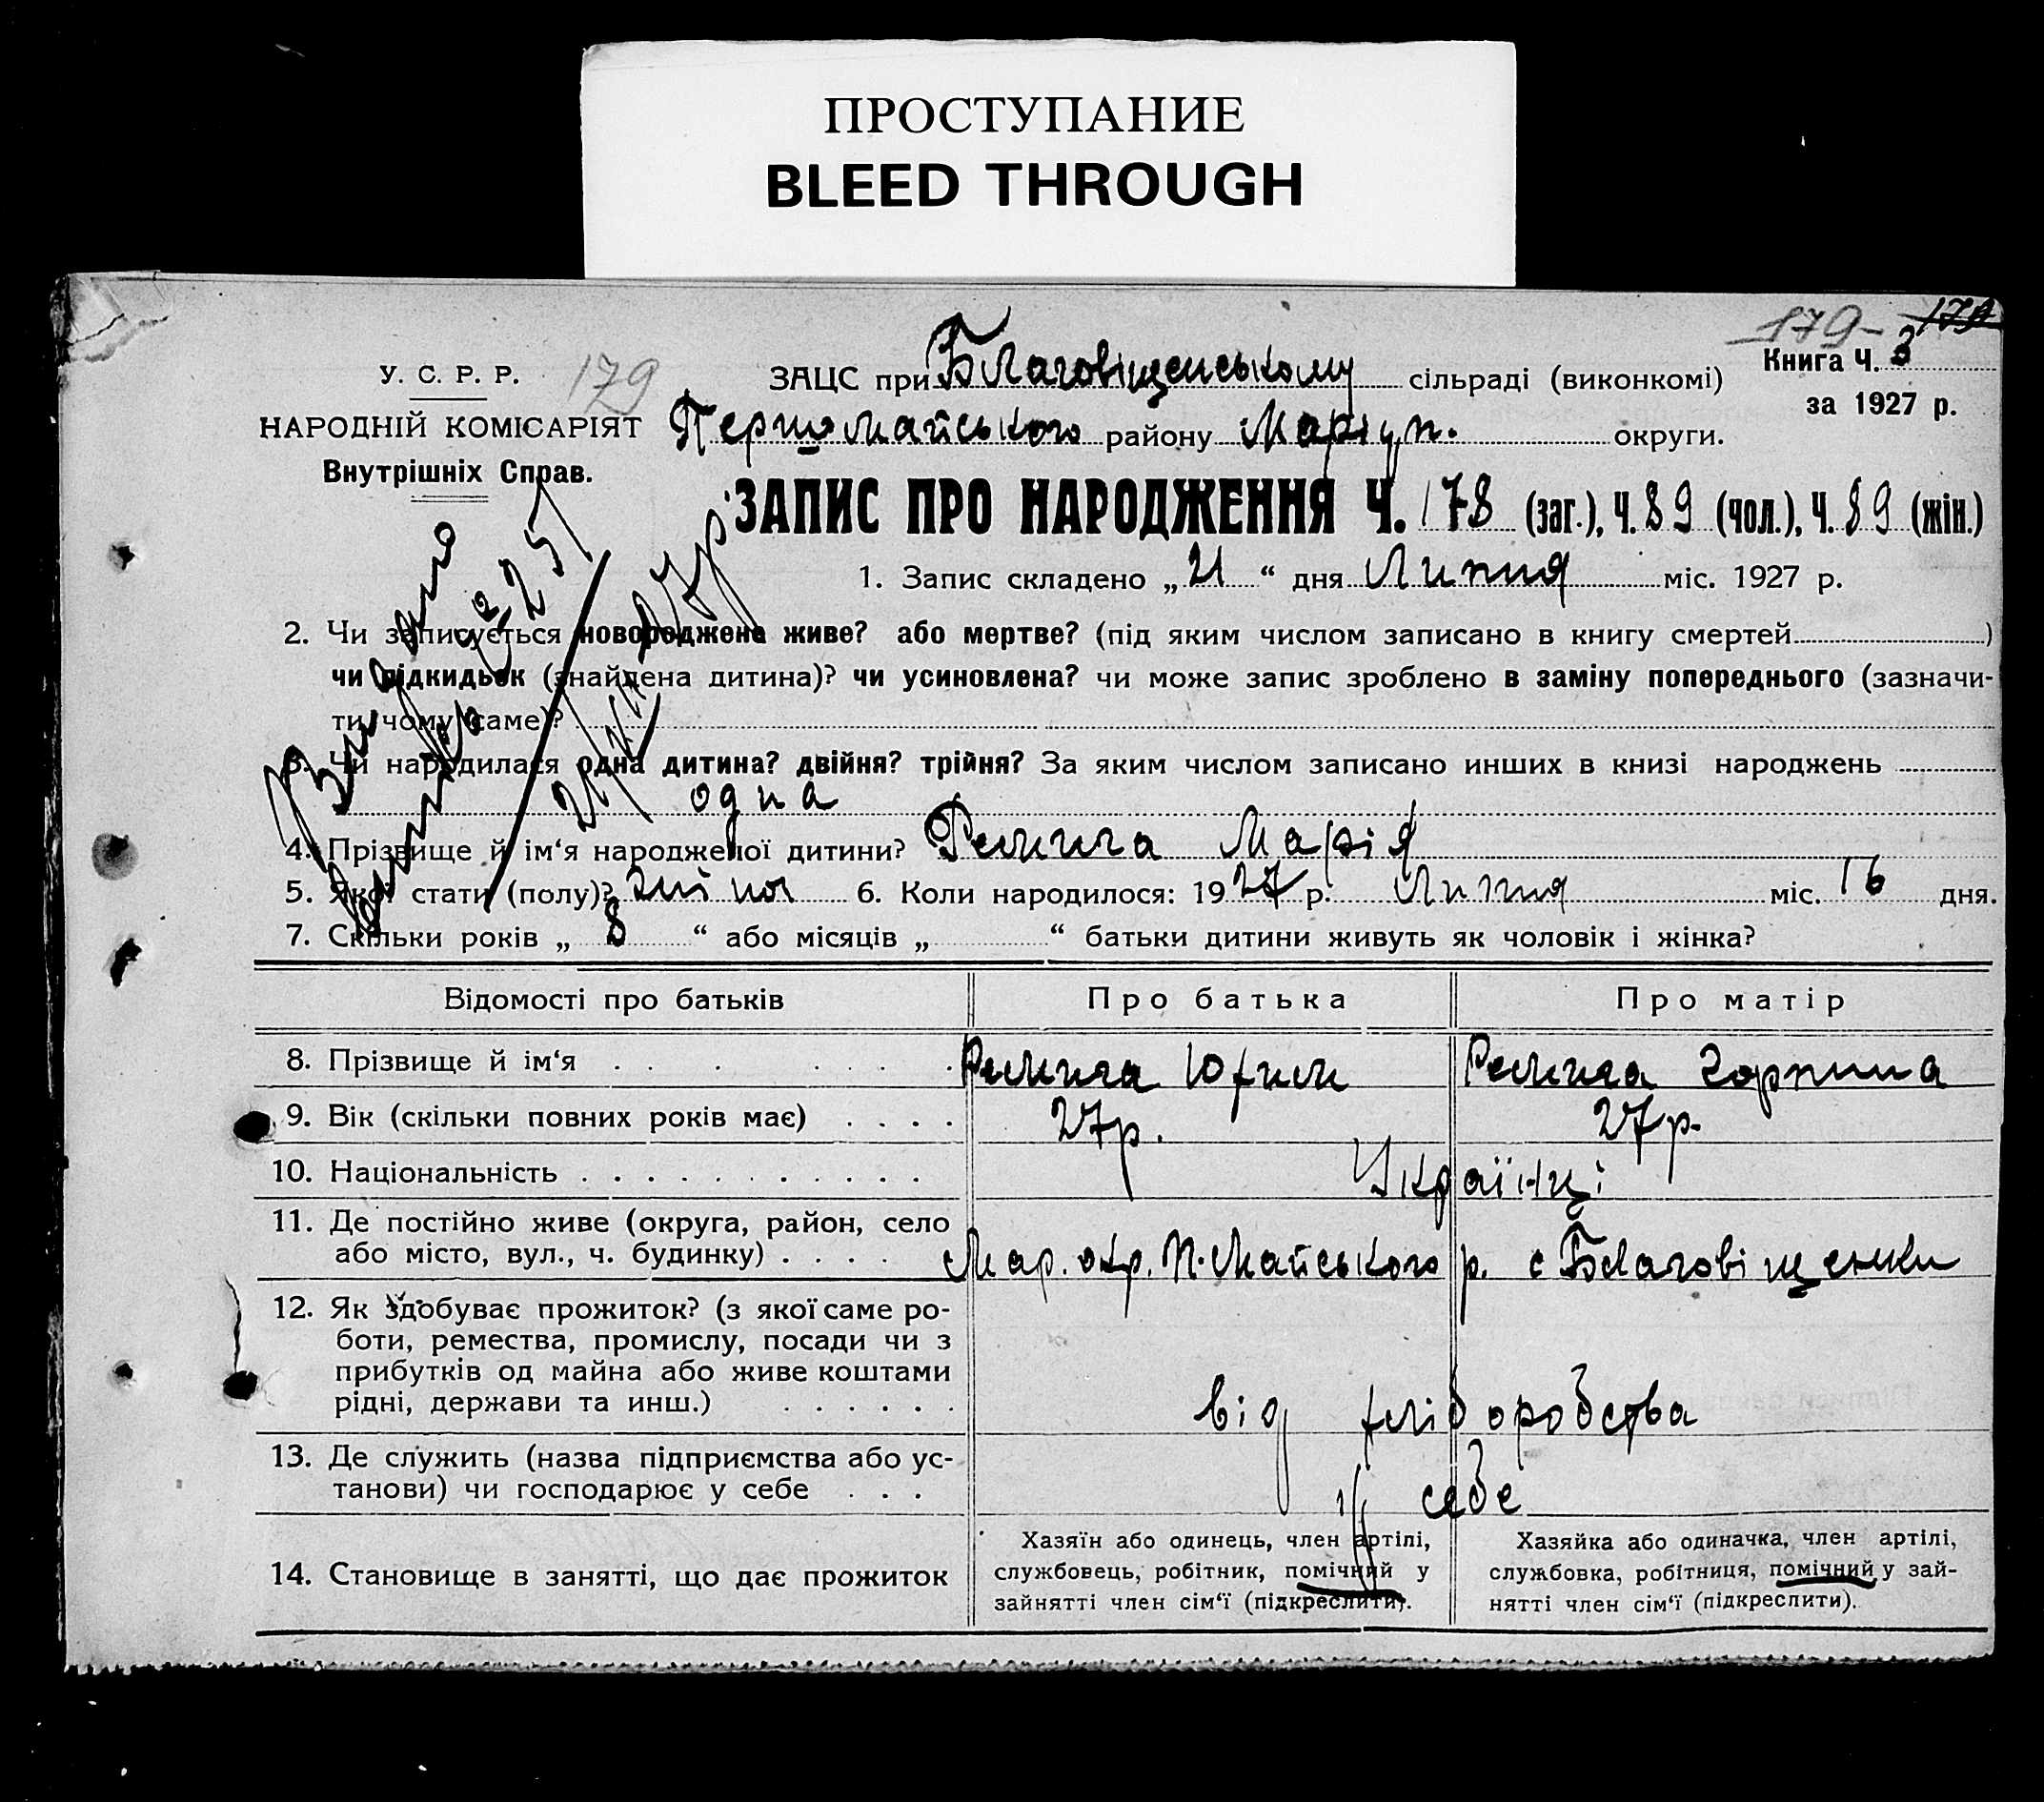 ПРОСТУПАНИЕ
BLEED THROUGH
179 179
У. С. Р. Р. 179
НАРОДНІЙ КОМІСАРІЯТ
Внутрішніх Справ.
ЗАЦС при Благовіщенському сільраді (виконкомі)
Книга Ч. 3
за 1927 р.
Першомайського району Маріуп. округи.
ЗАПИС ПРО НАРОДЖЕННЯ Ч. 178 (заг.), Ч. 89 (чол.), Ч. 89 (жін.)
1. Запис складено „ 21 “ дня Липня міс. 1927 р.
2. Чи записується новороджене живе? або мертве? (під яким числом записано в книгу смертей )
чи підкидьок (знайдена дитина)? чи усиновлена? чи може запис зроблено в заміну попереднього (зазначи-
ти чому саме)?
3. Чи народилася одна дитина? двійня? трійня? За яким числом записано инших в книзі народжень
одна
4. Прізвище й ім‘я народженої дитини? Ремига Марія
5. Якої стати (полу)? жіноч 6. Коли народилося: 1927 р. Липня міс. 16 дня.
7. Скільки років „ 8 “ або місяців „ “ батьки дитини живуть як чоловік і жінка?
Відомості про батьків Про батька Про матір
8. Прізвище й ім‘я Ремига Юхим Ремига Горпина
9. Вік (скільки повних років має) 27р. 27р.
10. Національність Українці
11. Де постійно живе (округа, район, село
або місто, вул., ч. будинку) Мар. окр. П.Майського р. с Благовіщенки
12. Як здобуває прожиток? (з якої саме ро-
боти, ремества, промислу, посади чи з
прибутків од майна або живе коштами
рідні, держави та инш.) від хліборобства
13. Де служить (назва підприємства або ус-
танови) чи господарює у себе у себе
14. Становище в занятті, що дає прожиток
Хазяїн або одинець, член артілі,
службовець, робітник, помічний у
зайнятті член сім‘ї (підкреслити).
Хазяйка або одиначка, член артілі,
службовка, робітниця, помічний у зай-
нятті член сім‘ї (підкреслити).